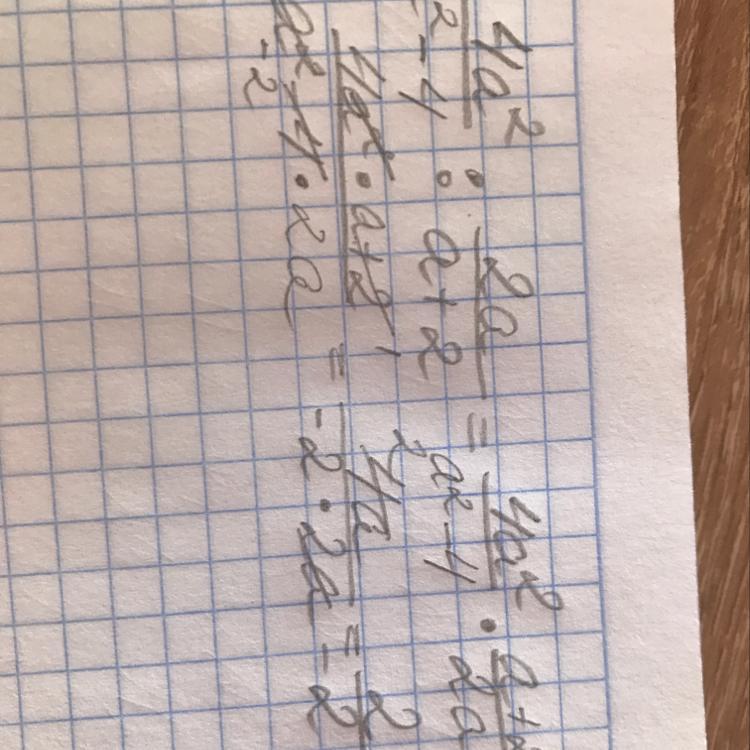 4a² / a² - 4 : 2a / a + 2 = 4a² / a² - 4 · a + 2 / 2a
4a² · a + 2 / a² - 4 · 2a = 4a / -2 · 2a = 2 / -2